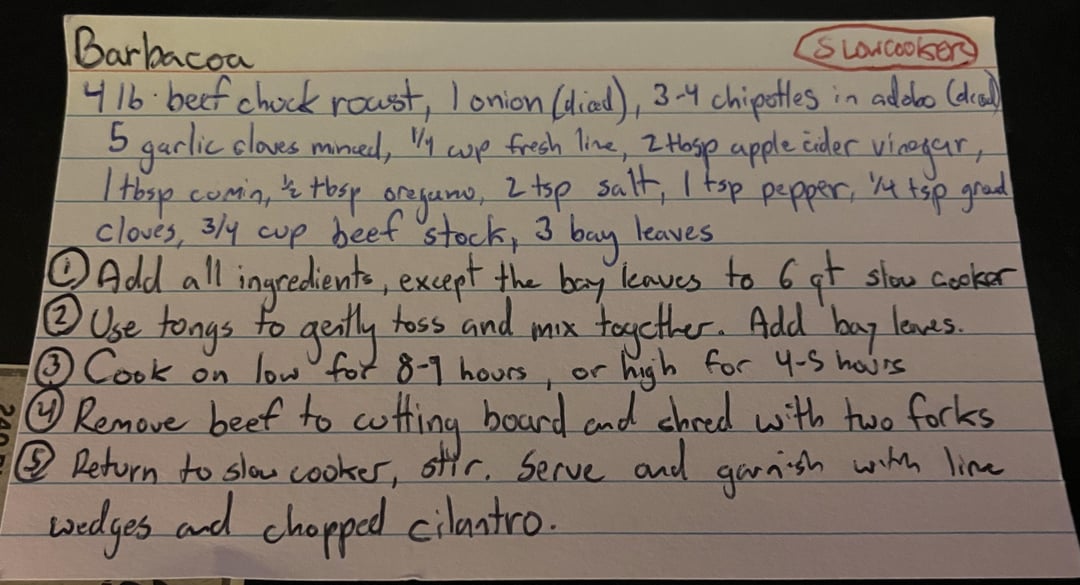 Barbacoa
Slowcooker
4 lb. beef chuck roast, 1 onion (diced), 3-4 chipotles in adobo (diced)
5 garlic cloves minced, 1/4 cup fresh lime, 2 tbsp apple cider vinegar,
1 tbsp cumin, 1/2 tbsp oregano, 2 tsp salt, 1 tsp pepper, 1/4 tsp ground
cloves, 3/4 cup beef stock, 3 bay leaves
① Add all ingredients, except the bay leaves to 6 qt slow cooker
② Use tongs to gently toss and mix together. Add bay leaves.
③ Cook on low for 8-9 hours, or high for 4-5 hours
④ Remove beef to cutting board and shred with two forks
⑤ Return to slow cooker, stir. Serve and garnish with lime
wedges and chopped cilantro.